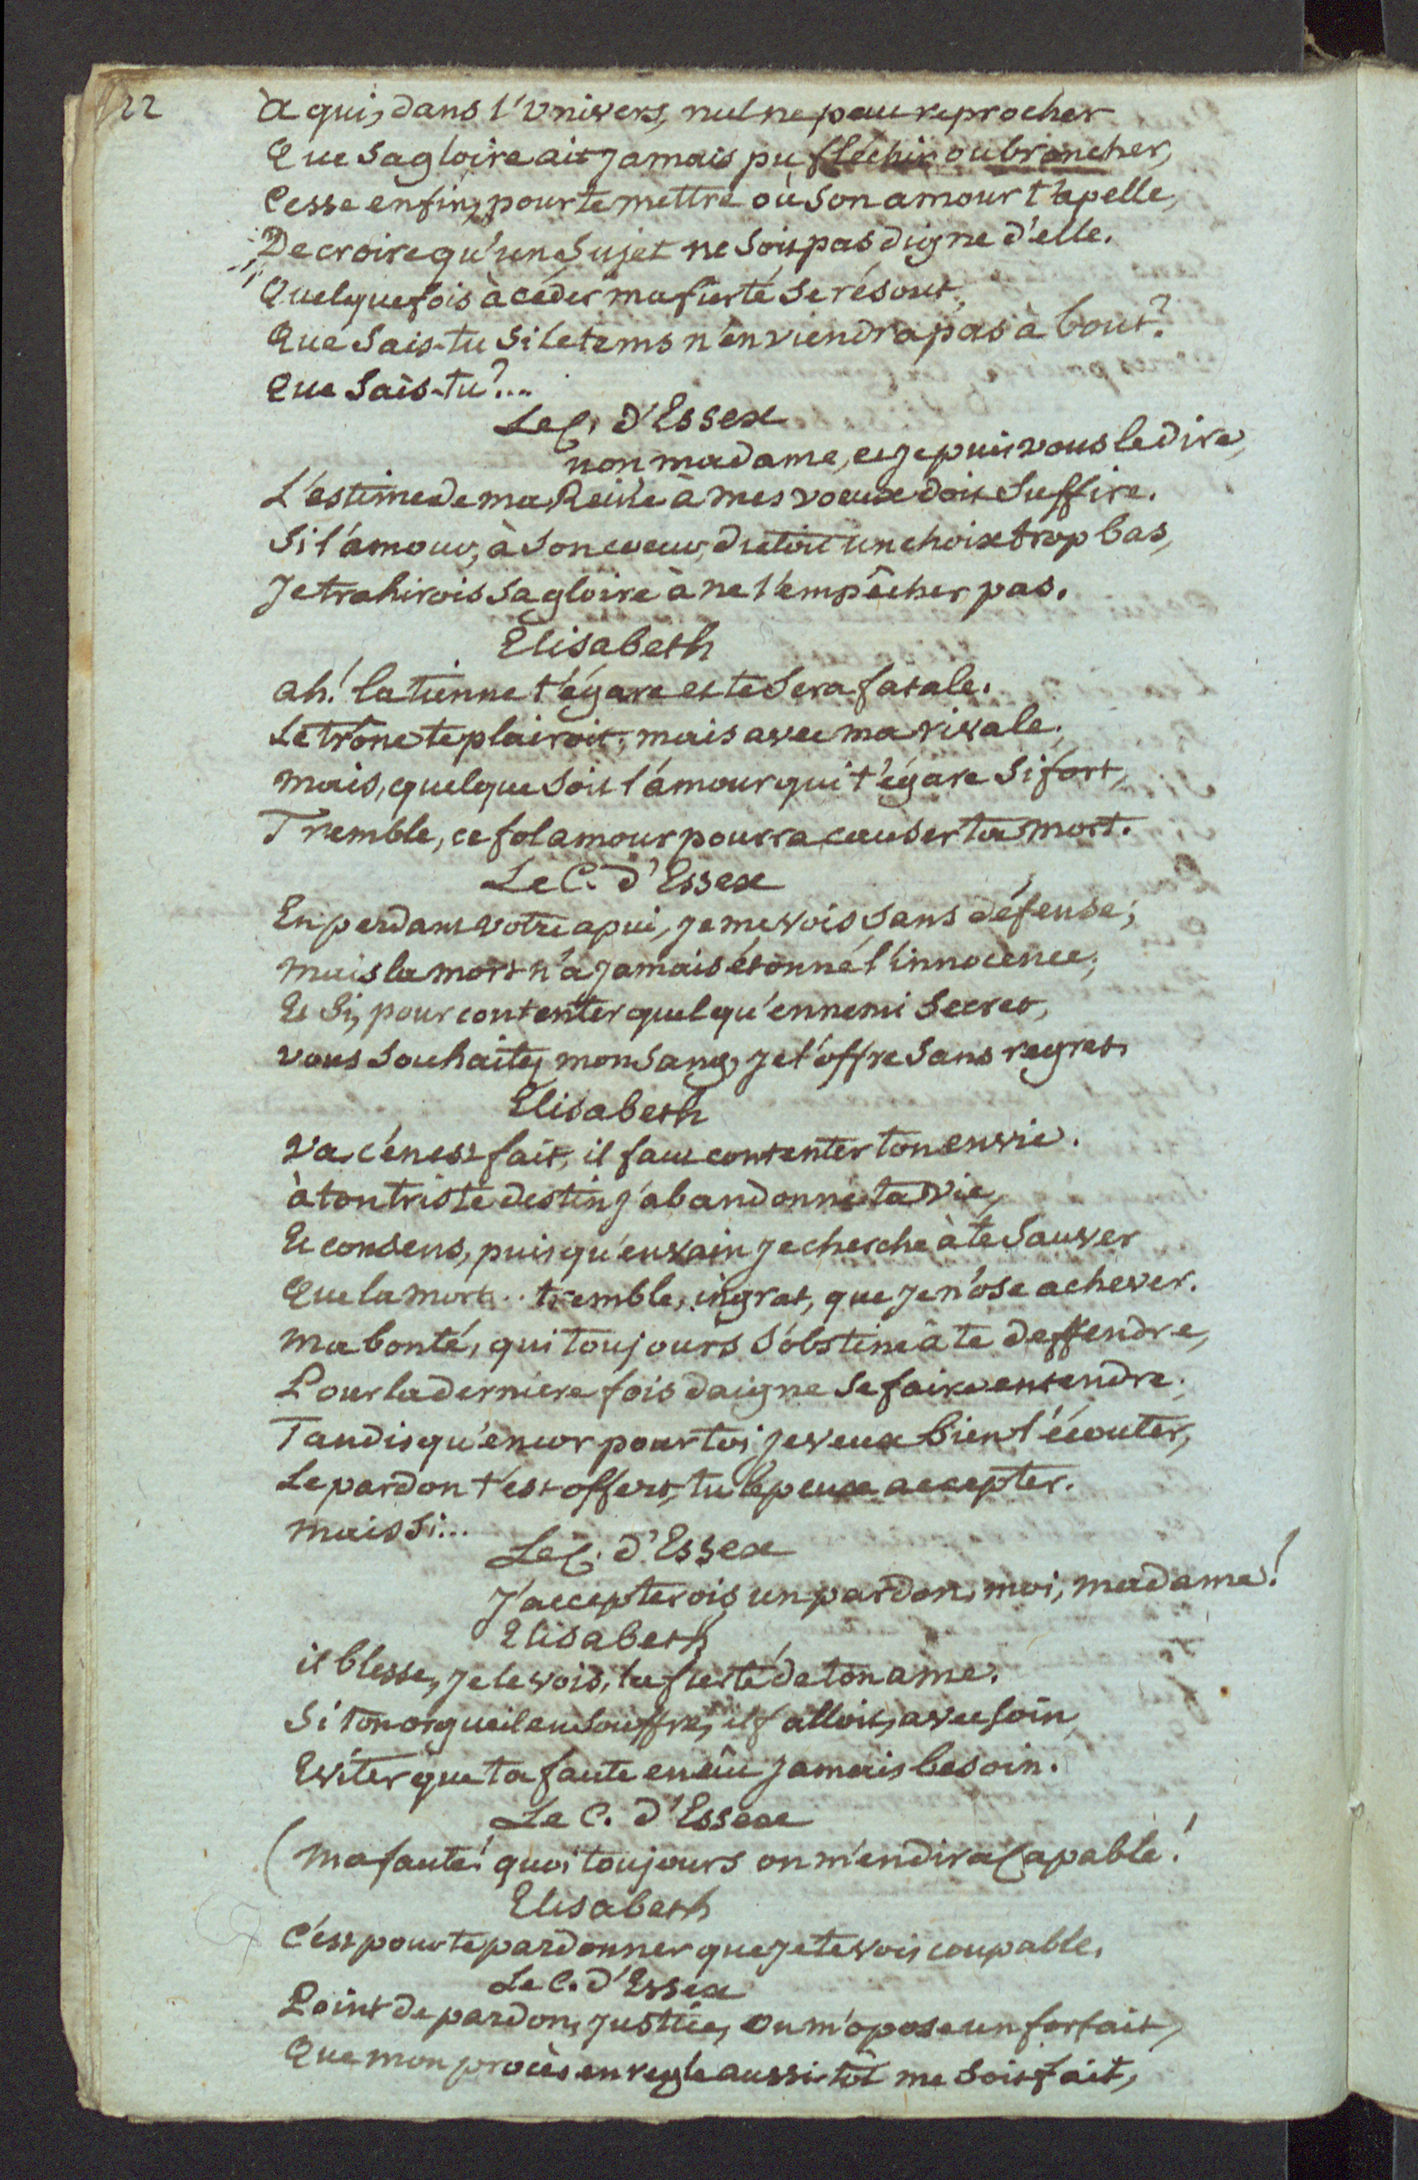 22
à qui, dans l'Univers, nul ne peu reprocher
Que sa gloire ait jamais pu fléchir ou broncher,
Cesse enfin, pour te mettre où son amour t'apelle,
De croire qu'un Sujet ne soit pas digne d'elle.
Quelquefois à céder ma fierté se résout,
Que sais-tu si le tems n'en viendra pas à bout?
Que sais-tu?...
Le C. d'Essex
non madame, et je puis vous le dire,
L'estime de ma Reine à mes voeux doit suffire.
Si l'amour, à son coeur, dictoit un choix trop bas,
Je trahirois sa gloire à ne l'empêcher pas.
Elisabeth
ah! la tienne t'égare et te sera fatale.
Le trône te plairoit, mais avec ma rivale.
mais, quelque soit l'amour qui t'égare si fort,
Tremble, ce fol amour pourra causer ta mort.
Le C. d'Essex
En perdant votre apui, je me vois sans défense;
mais la mort n'a jamais étonné l'innocence;
Et si, pour contenter quelqu'ennemi secret,
vous souhaitez mon sang, je l'offre sans regret.
Elisabeth
Va, c'en est fait, il faut contenter ton envie.
à ton triste destin j'abandonne ta vie,
Et consens, puisqu'en vain je cherche à te sauver
Que la mort... tremble, ingrat, que je n'ose achever.
ma bonté, qui toujours s'obstine à te deffendre,
Pour la derniere fois daigne se faire entendre.
Tandis qu'encor pour toi je veux bien l'écouter,
Le pardon t'est offert, tu le peux accepter.
mais si...
Le C. d'Essex
J'accepterois un pardon, moi, madame!
Elisabeth
il blesse, je le vois, la fierté de ton ame.
Si ton orgueil en souffre, il falloit, avec soin,
Eviter que ta faute en eût jamais besoin.
Le C. d'Essex
( ma faute! quoi toujours on m'en dira Capable!
Elisabeth
C'est pour te pardonner que je te vois coupable.
Le C. d'Essex
Point de pardon, justice, on m'opose un forfait,
Que mon procès en regle aussitôt me soit fait,